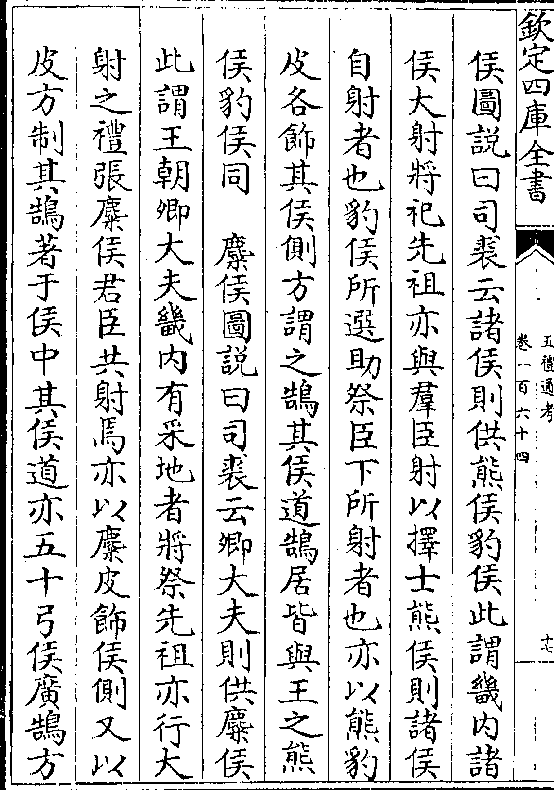 欽定四庫全書
五禮通考
卷一百六十四
侯圖説曰司裘云諸侯則供熊侯豹侯此謂畿内諸
侯大射將祀先祖亦與羣臣射以擇士熊侯則諸侯
自射者也豹侯所選助祭臣下所射者也亦以熊豹
皮各飾其侯側方謂之鵠其侯道鵠居皆與王之熊
侯豹侯同　麋侯圖説曰司裘云卿大夫則供麋侯
此謂王朝卿大夫畿内有采地者將祭先祖亦行大
射之禮張麋侯君臣共射焉亦以麋皮飾侯側又以
皮方制其鵠著于侯中其侯道亦五十弓侯廣鵠方